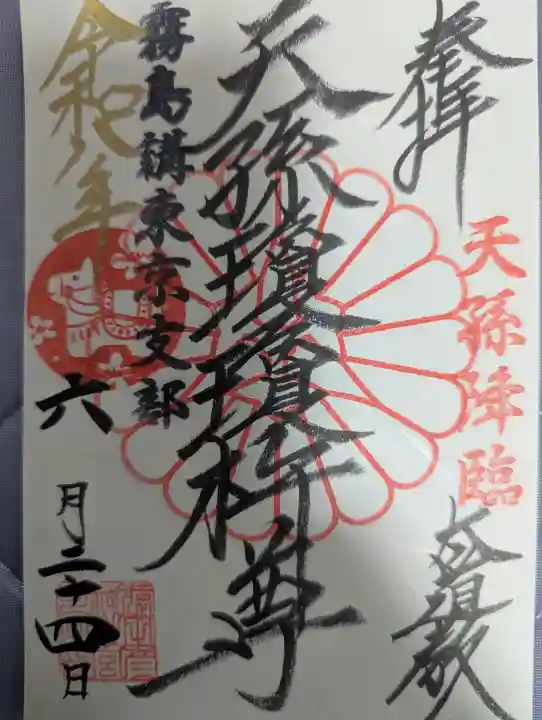 奉拝
天孫降臨
天孫瓊瓊杵尊
霧島講東京支部
令和八年
六月二十四日